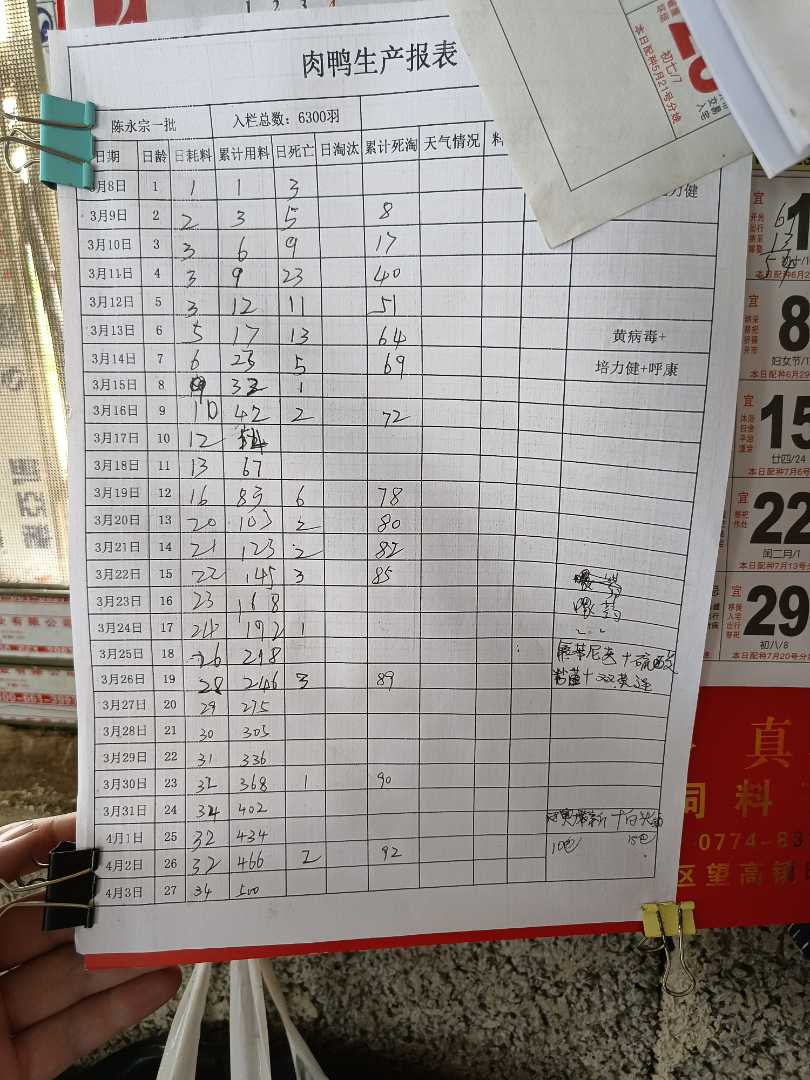 1 2 3 4
肉鸭生产报表
陈永宗一批 入栏总数：6300羽
日期 日龄 日耗料 累计用料 日死亡 日淘汰 累计死淘 天气情况 料
3月8日 1 1 1 3 力健
3月9日 2 2 3 5 8
3月10日 3 3 6 9 17
3月11日 4 3 9 23 40
3月12日 5 3 12 11 51
3月13日 6 5 17 13 64 黄病毒+
3月14日 7 6 23 5 69 培力健+呼康
3月15日 8 9 32 1
3月16日 9 10 42 2 72
3月17日 10 12 54
3月18日 11 13 67
3月19日 12 16 83 6 78
3月20日 13 20 103 2 80
3月21日 14 21 123 2 82
3月22日 15 22 145 3 85
3月23日 16 23 168 喂药
3月24日 17 24 192 1
3月25日 18 26 218
3月26日 19 28 246 3 89
3月27日 20 29 275
3月28日 21 30 305
3月29日 22 31 336
3月30日 23 32 368 1 90
3月31日 24 34 402
4月1日 25 32 434
4月2日 26 32 466 2 92 10包 15包
4月3日 27 34 500
初七/7
本日配种5月21号分娩
宜
8
妇女节/1
本日配种6月29
宜
15
廿四/24
本日配种7月6号
宜
22
闰二月/1
本日配种7月13号分
宜
29
初八/8
本日配种7月20号分娩
真
饲料
0774-83
区望高镇
业有限公司